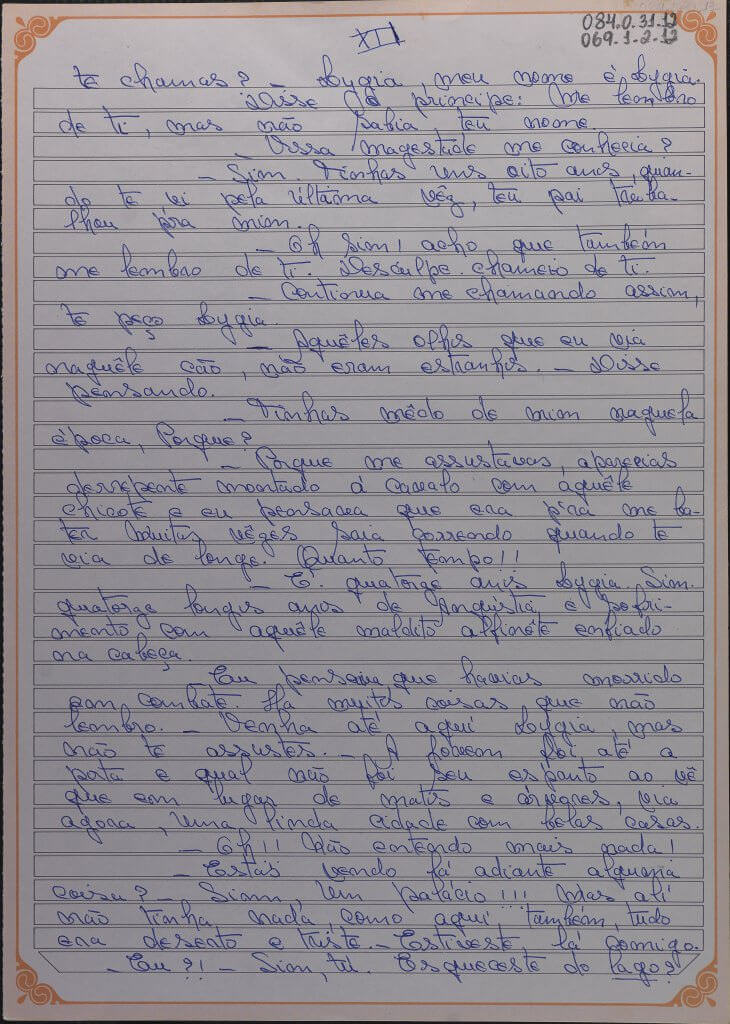 084.0.31.12
069.1-2-12
XII
te chamas? - Lygia, meu nome é Lygia.
Disse o príncipe: Me lembro
de ti, mas não sabia teu nome.
- Vssa magestade me conhecia?
- Sim. Tinhas uns oito anos, quan-
do te vi pela última vêz, teu pai traba-
lhou p'ra mim.
- Oh sim! acho que também
me lembro de ti. Desculpe chameio de ti.
- Continua me chamando assim,
te peço Lygia.
- Aquêles olhos que eu via
naquêle cão, não eram estranhos. - Disse
pensando.
- Tinhas mêdo de mim naquela
época, Porque?
- Porque me assustavas, aparecias
derrepente montado á cavalo com aquêle
chicote e eu pensava que era p'ra me ba-
ter. Muitas vêzes saia correndo quando te
via de longe. Quanto tempo!!
- É. quatorze anos Lygia. Sim.
quatorze longos anos de Angústia e sofri-
mento com aquêle maldito alfinête enfiado
na cabeça.
- Eu pensava que havias morrido
em combate. Há muitas coisas que não
lembro. - Venha até aqui Lygia, mas
não te assustes. - A jovem foi até a
porta e qual não foi seu espanto ao vê
que em lugar de matos e árvores, via
agora, uma linda cidade com belas casas.
- Oh!! Não entendo mais nada!
- Estás vendo lá adiante alguma
coisa? - Sim, um palácio!!! Mas ali
não tinha nada, como aqui também, tudo
era deserto e triste. - Estiveste lá comigo.
- Eu?! - Sim, tu. Esqueceste do lago?